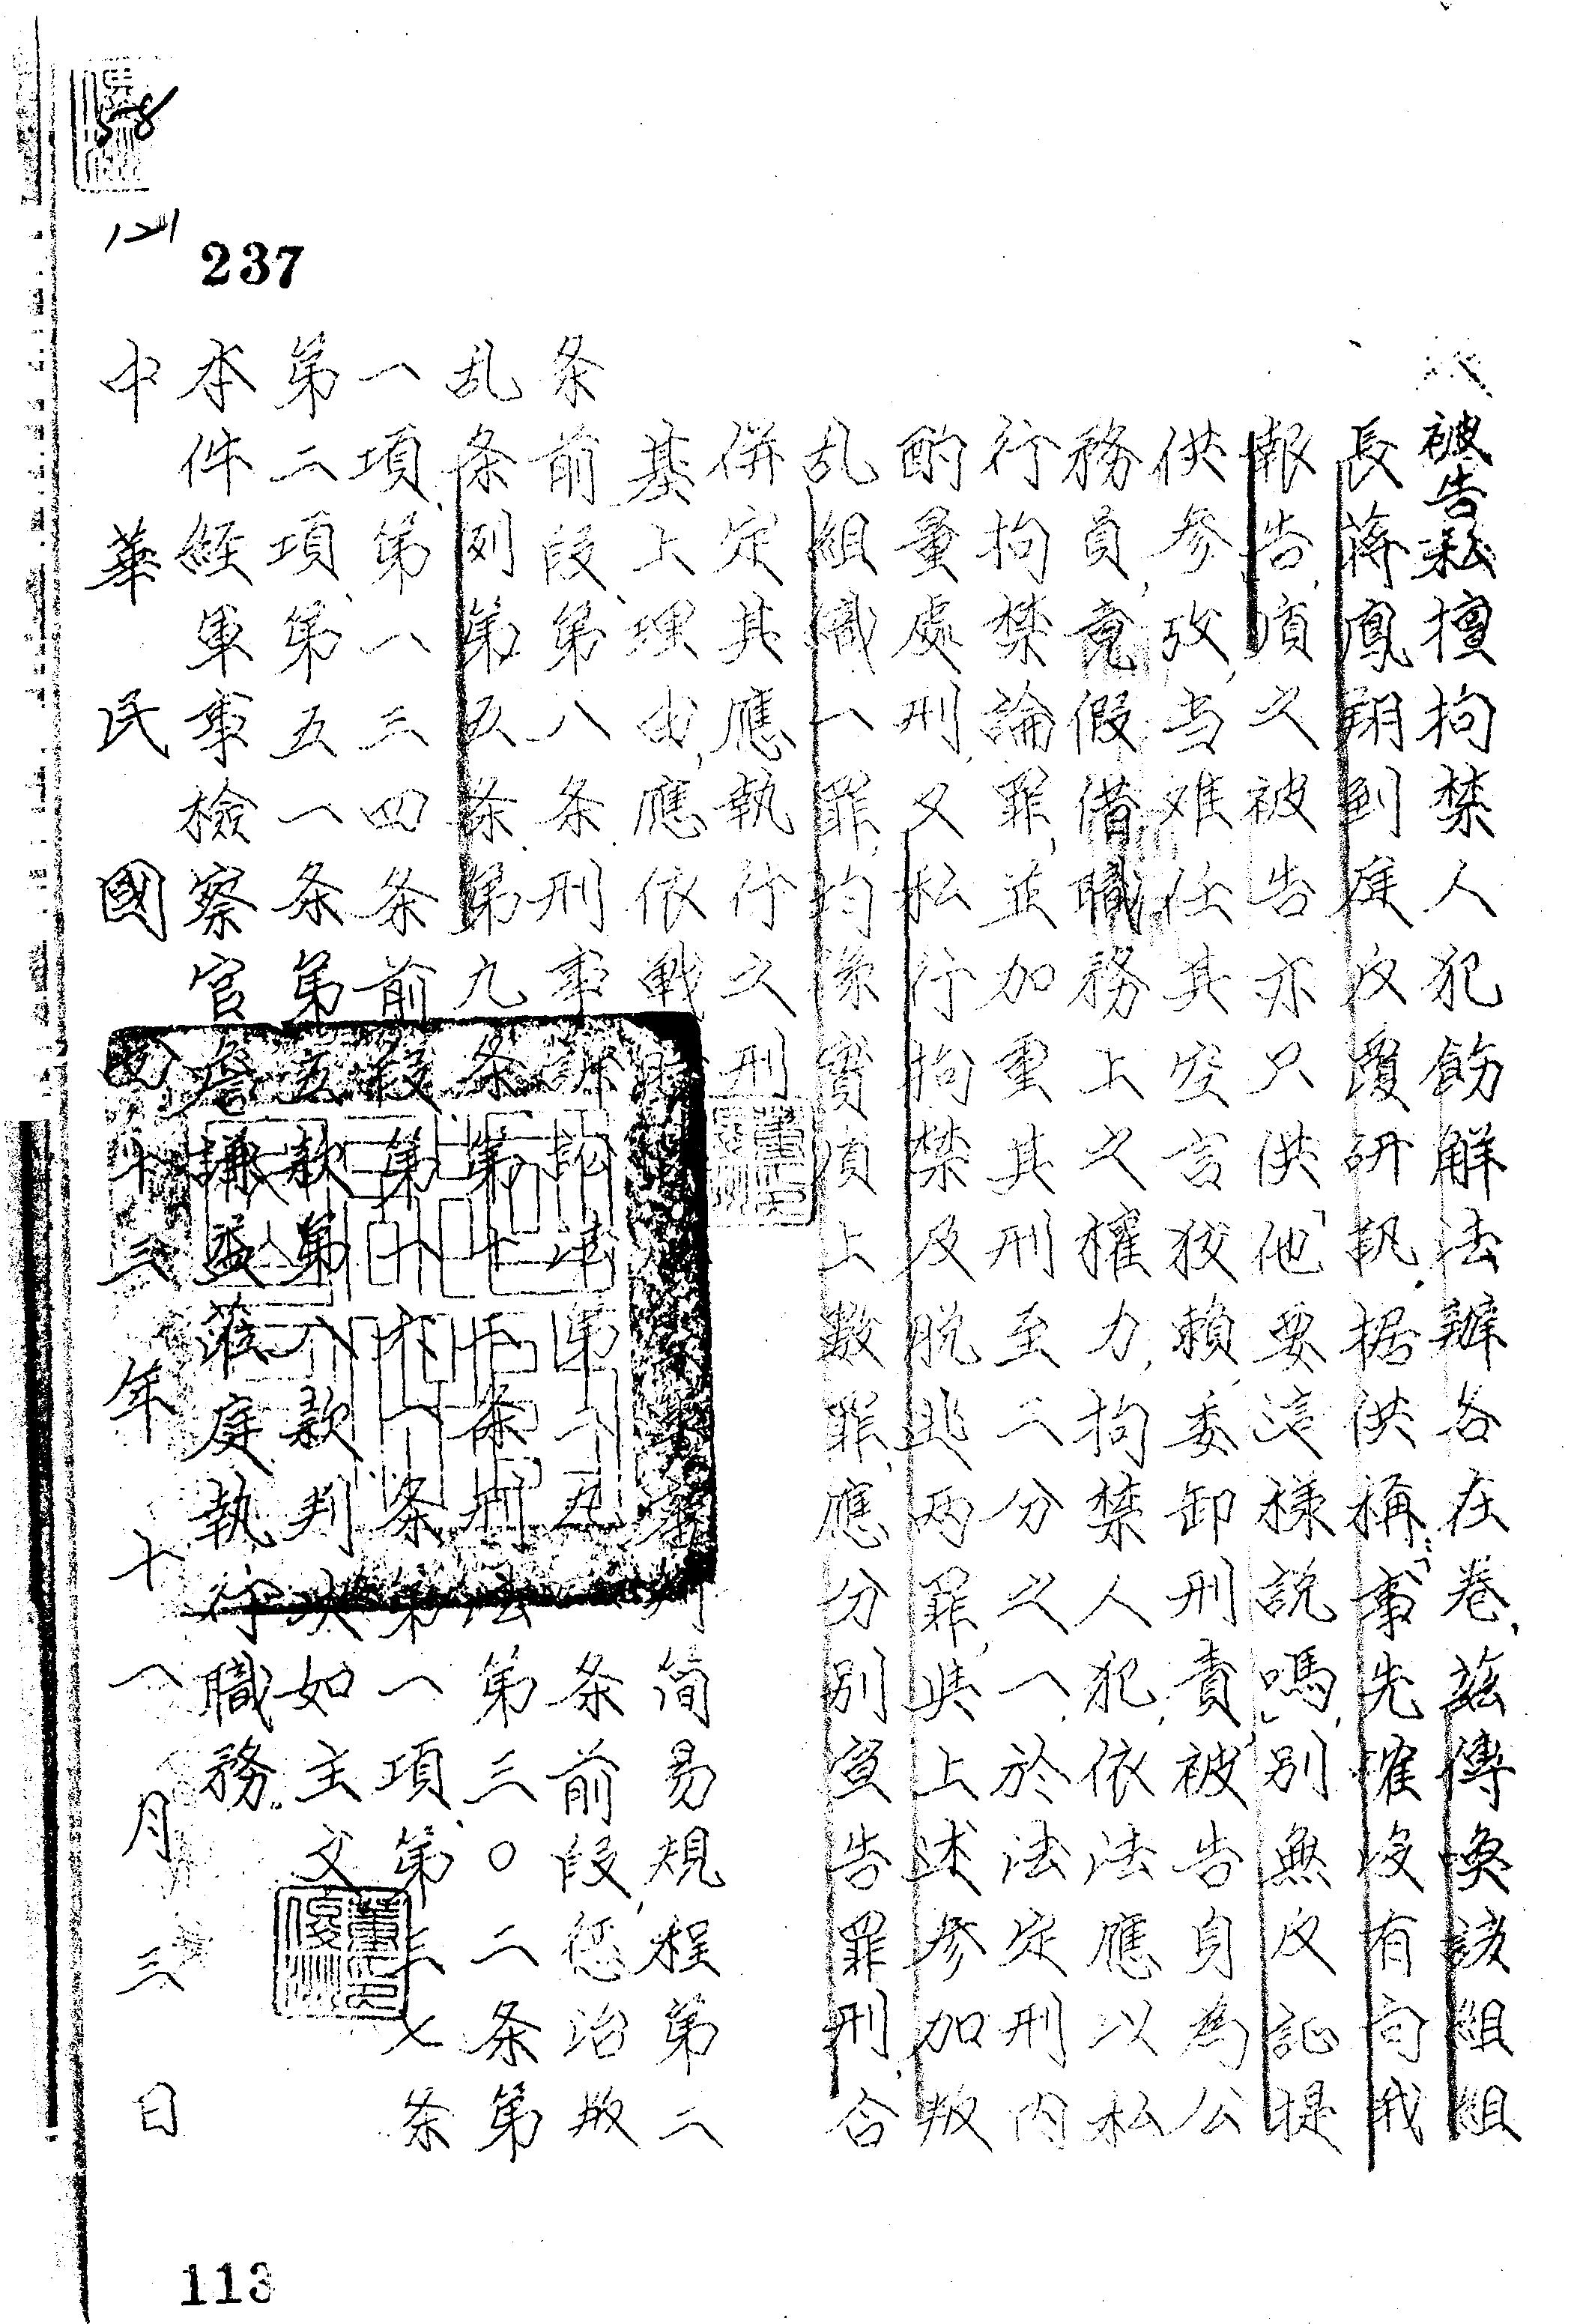 58
121
237
被告私擅拘禁人犯飭解法辦各在卷,茲傳喚該組組
長蔣鳳翔到庭反覆研訊,据供稱:「事先確沒有向我
報告,項之被告亦只供「他要這樣說嗎」,別無反証提
供參攷,当难任其空言狡賴,委卸刑責,被告身為公
務員,竟假借職務上之權力,拘禁人犯,依法應以私
行拘禁論罪,並加重其刑至二分之一,於法定刑內
酌量處刑,又私行拘禁及脫逃兩罪,與上述參加叛
乱組織一罪,均係實質上數罪,應分別宣告罪刑,合
併定其應執行之刑
基上理由,應依戰時 簡易規程第二
条前段、第八条刑事訴訟法第二九一条前段,懲治叛
乱条例第五条第九条第十二条,刑法第三〇二条第
一項、第一三四条前段第六十一条第一項、第三七条
第二項、第五一条第五款第八款判决如主文
本件經軍事檢察官詹謙益蒞庭執行職務。
中華民國四十三年十一月三日
113